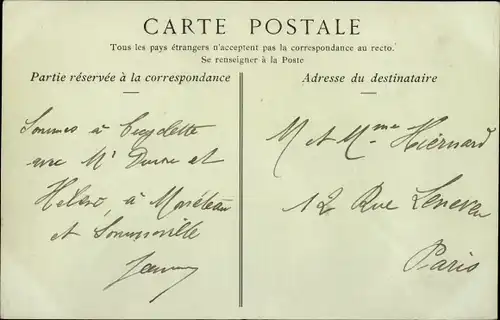 CARTE POSTALE
Tous les pays étrangers n'acceptent pas la correspondance au recto.
Se renseigner à la Poste
Partie réservée à la correspondance
Adresse du destinataire
Sommes à
avec Mr et
à Monéteau
et
M et Mme Hiernard
12 Rue
Paris